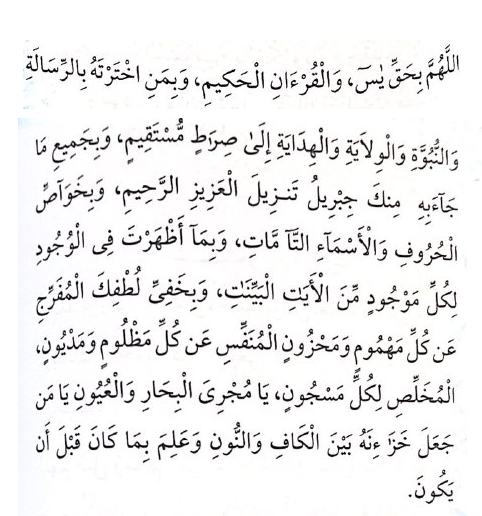 اللَّهُمَّ بِحَقِّ يٰسٓ، وَالْقُرْءَانِ الْحَكِيمِ، وَبِمَنِ اخْتَرْتَهُ بِالرِّسَالَةِ
وَالنُّبُوَّةِ وَالْوِلَايَةِ وَالْهِدَايَةِ إِلَىٰ صِرَاطٍ مُّسْتَقِيمٍ، وَبِجَمِيعِ مَا
جَآءَبِهِ مِنكَ جِبْرِيلُ تَنزِيلَ الْعَزِيزِ الرَّحِيمِ، وَبِخَوَآصِّ
الْحُرُوفِ وَالْأَسْمَآءِ التَّآ مَّاتِ، وَبِمَآ أَظْهَرْتَ فِى الْوُجُودِ
لِكُلِّ مَوْجُودٍ مِّنَ الْأٰيَاتِ الْبَيِّنَاتِ، وَبِخَفِىِّ لُطْفِكَ الْمُفَرِّجِ
عَن كُلِّ مَهْمُومٍ وَمَحْزُونٍ الْمُنَفِّسِ عَن كُلِّ مَظْلُومٍ وَمَدْيُونٍ،
الْمُخَلِّصِ لِكُلِّ مَسْجُونٍ، يَا مُجْرِىَ الْبِحَارِ وَالْعُيُونِ يَا مَن
جَعَلَ خَزَآ ءِنَهُ بَيْنَ الْكَافِ وَالنُّونِ وَعَلِمَ بِمَا كَانَ قَبْلَ أَن
يَكُونَ.